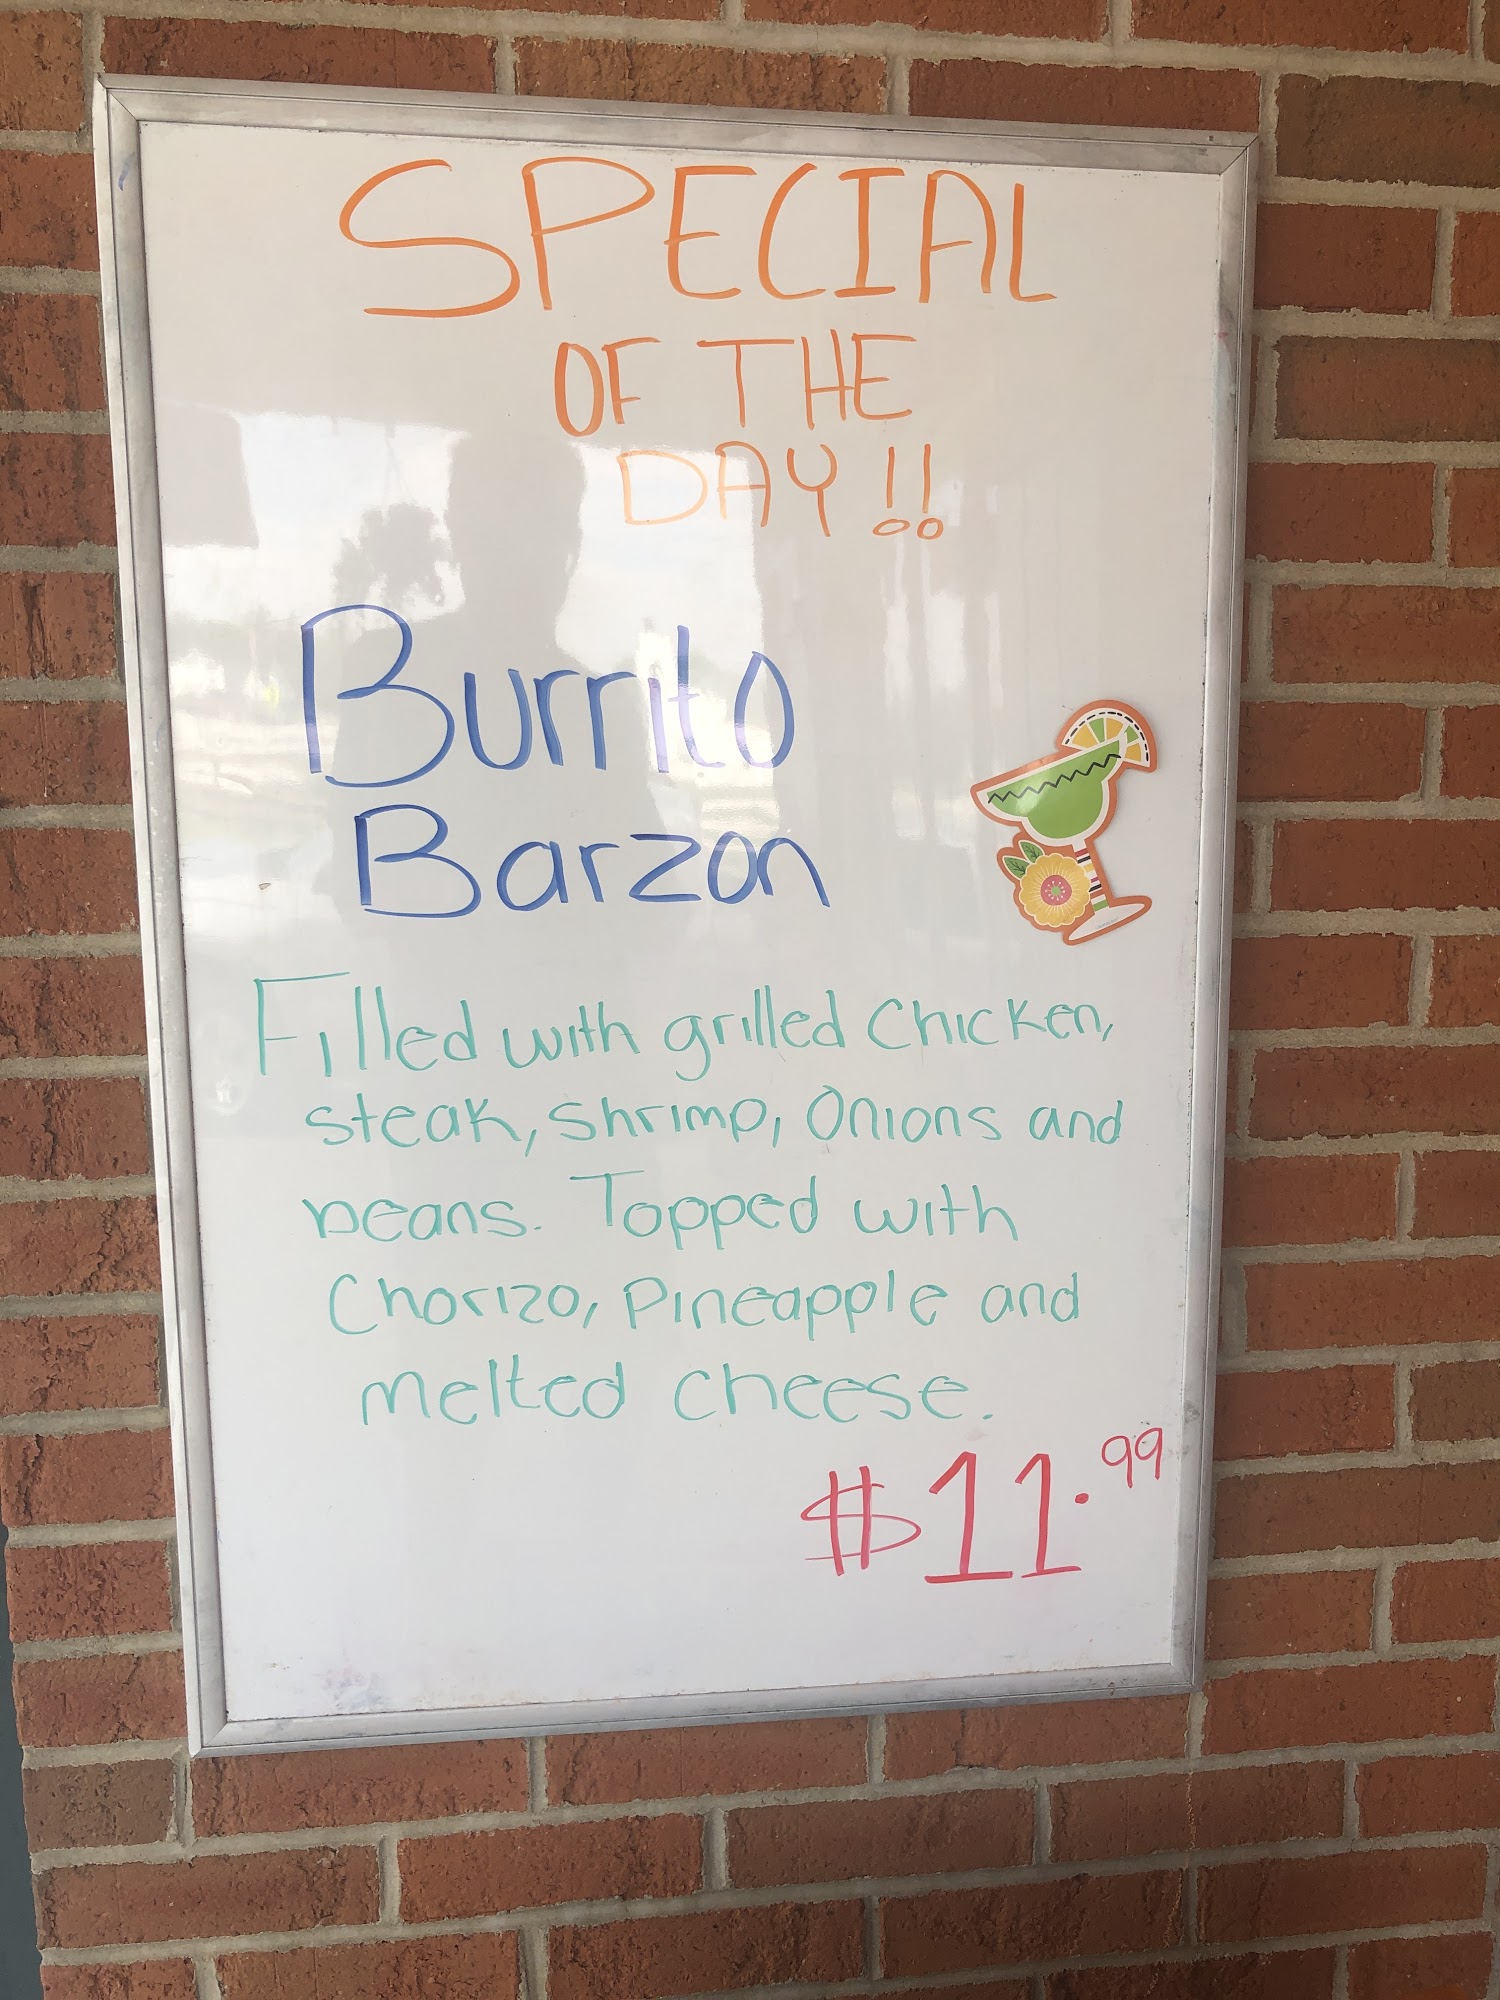 SPECIAL
OF THE
DAY!!
Burrito
Barzon
Filled with grilled chicken,
steak, shrimp, onions and
beans. Topped with
Chorizo, Pineapple and
melted cheese.
$11.99